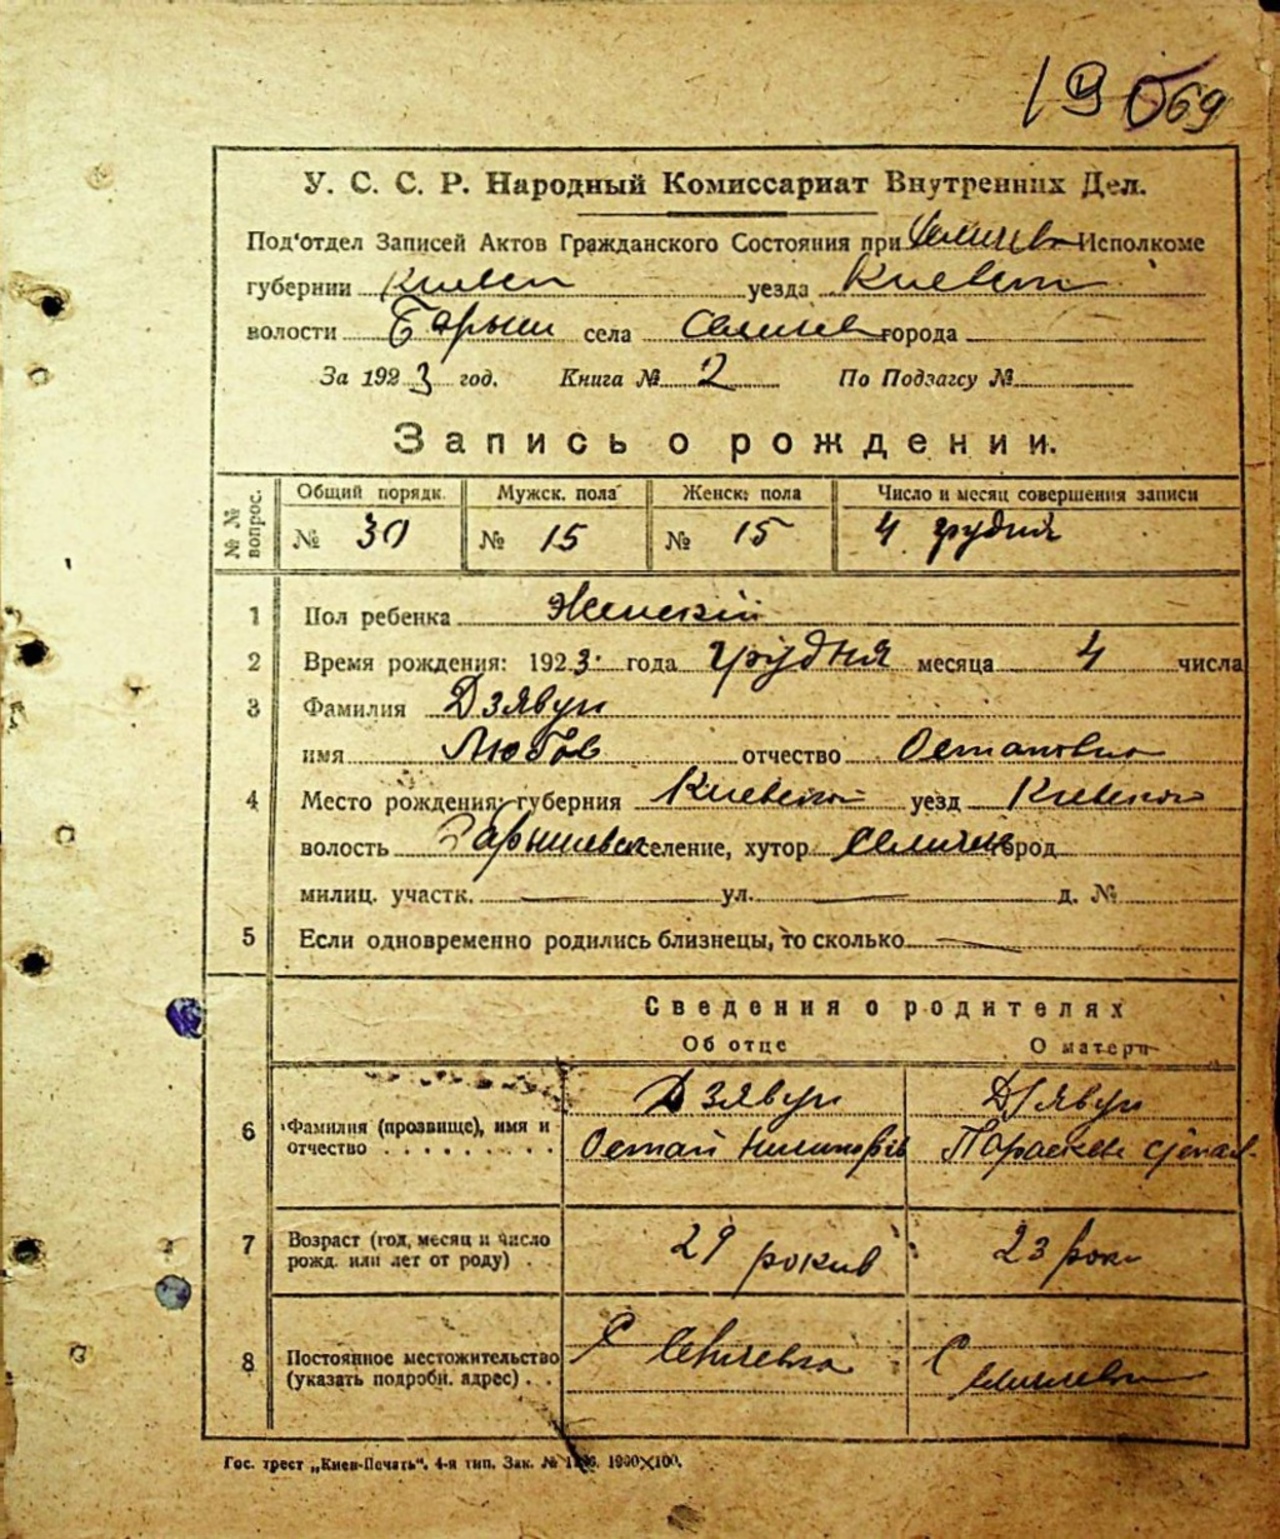 19 069
У. С. С. Р. Народный Комиссариат Внутренних Дел.
Под'отдел Записей Актов Гражданского Состояния при Исполкоме
губернии Киевск уезда Киевск
волости Барыш села Селищев города
За 1923 год. Книга № 2 По Подзагсу №
Запись о рождении.
№ № вопрос.
Общий порядк. Мужск. пола Женск. пола Число и месяц совершения записи
№ 30 № 15 № 15 4 грудня
1 Пол ребенка Женскій
2 Время рождения: 1923. года грудня месяца 4 числа
3 Фамилия Дзявун
имя Любов отчество Остаповна
4 Место рождения: губерния Киевской уезд Киевской
волость Барышевск селение, хутор город
милиц. участк. — ул. — д. №
5 Если одновременно родились близнецы, то сколько —
Сведения о родителях
Об отце О матери
6 Фамилия (прозвище), имя и отчество
Дзявун Дзявун
Остап Параскева
7 Возраст (год, месяц и число рожд. или лет от роду)
29 рокив 23 роки
8 Постоянное местожительство (указать подробн. адрес)
С С
Гос. трест „Киев-Печать“. 4-я тип. Зак. №